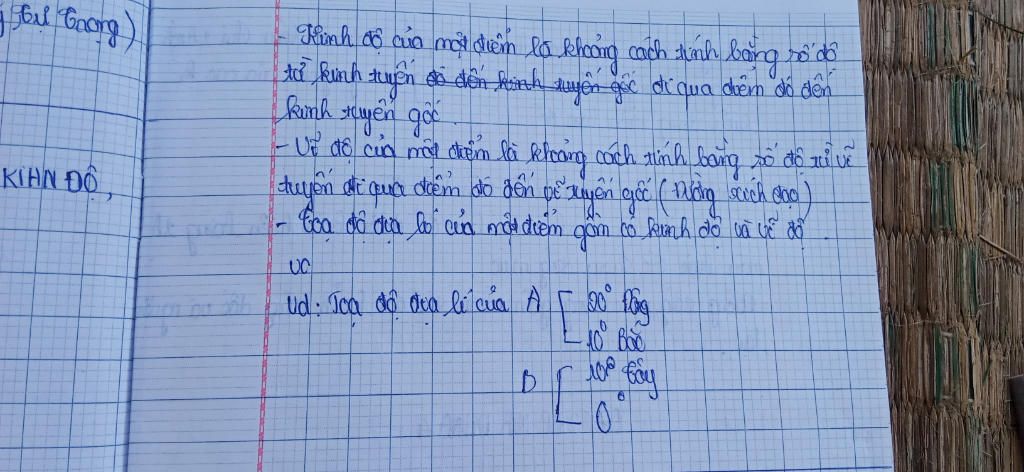 Cực Bacrọng)
- Kinh độ của một điểm là khoảng cách tính bằng số độ
từ kinh tuyến đó đến kinh tuyến gốc đi qua điểm đó đến
kinh tuyến gốc.
- Vĩ độ của một điểm là khoảng cách tính bằng số độ từ vĩ
KIHN ĐỘ,
tuyến đi qua điểm đó đến vĩ tuyến gốc (đường xích đạo)
- Tọa độ địa lí của một điểm gồm có kinh độ và vĩ độ.
VC
Vd: Toạ độ địa lí của A [ 20° Đông
10° Bắc
D [ 10° Tây
0°